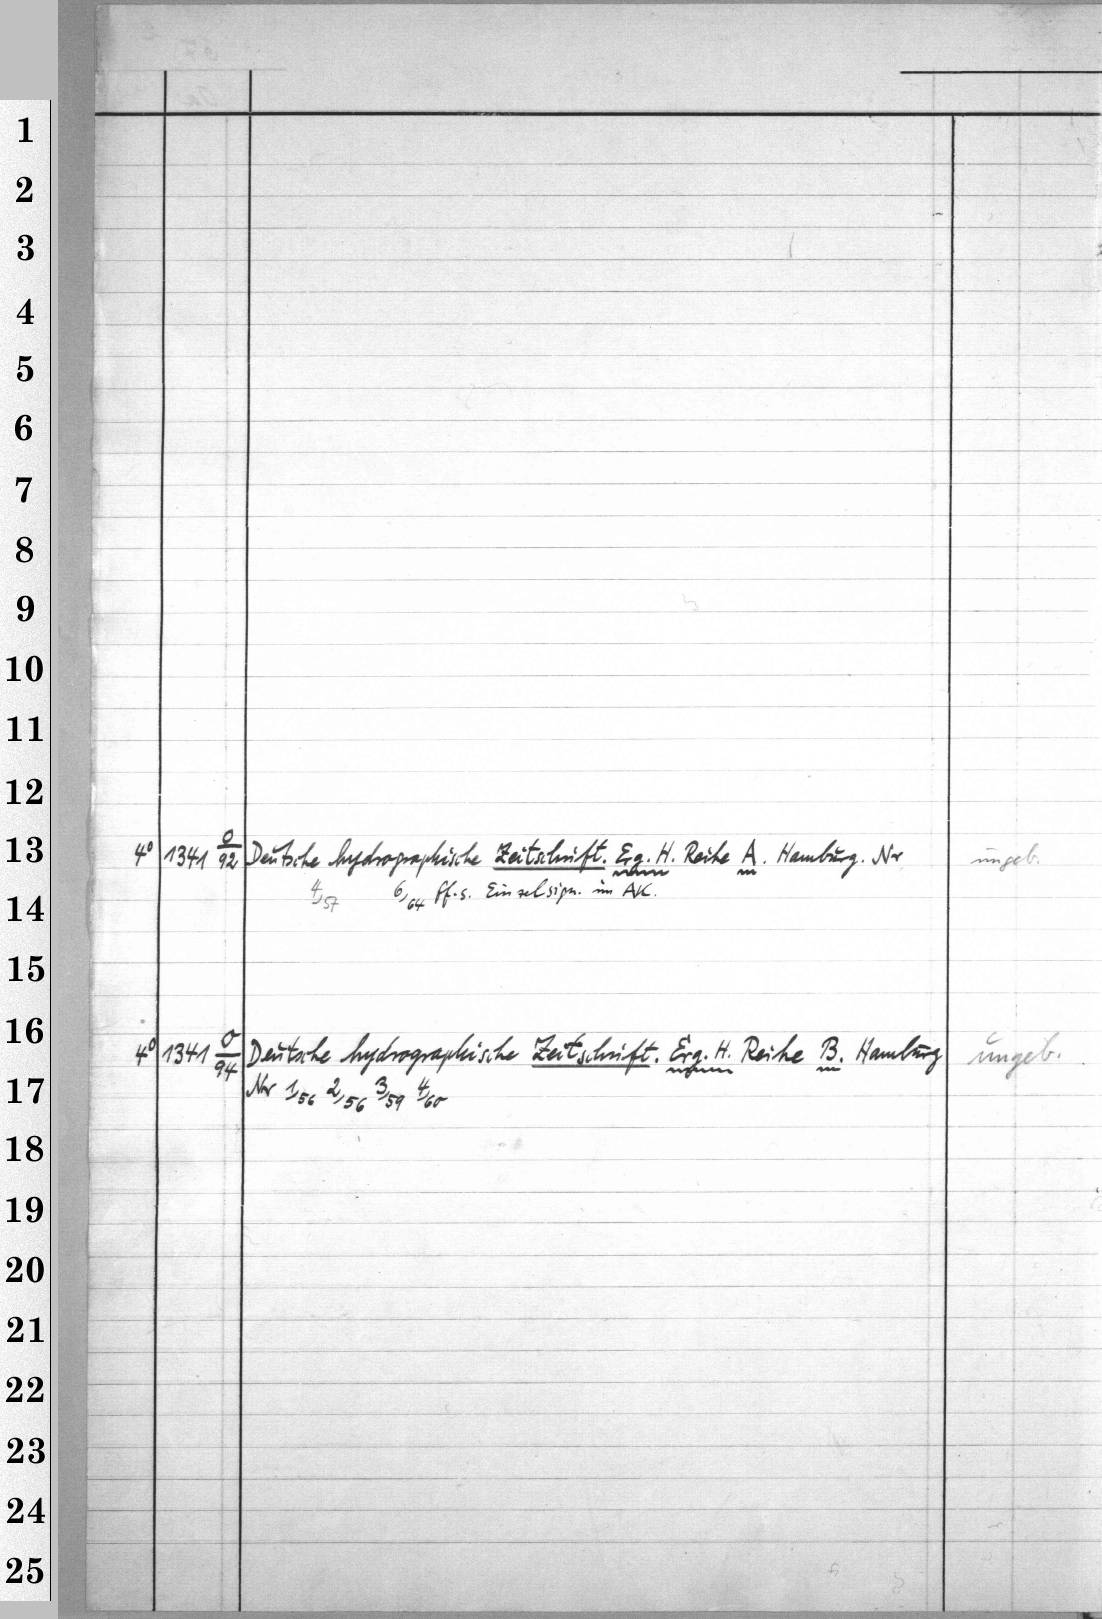 1
2
3
4
5
6
7
8
9
10
11
12
13
4° 1341 0/92 Deutsche hydrographische Zeitschrift. Erg. H. Reihe A. Hamburg. Nr ungeb.
4/57 6/64 ff. s. Einzelsign. im AK.
14
15
16
4° 1341 0/94 Deutsche hydrographische Zeitschrift. Erg. H. Reihe B. Hamburg ungeb.
Nr 1/56 2/56 3/59 4/60
17
18
19
20
21
22
23
24
25